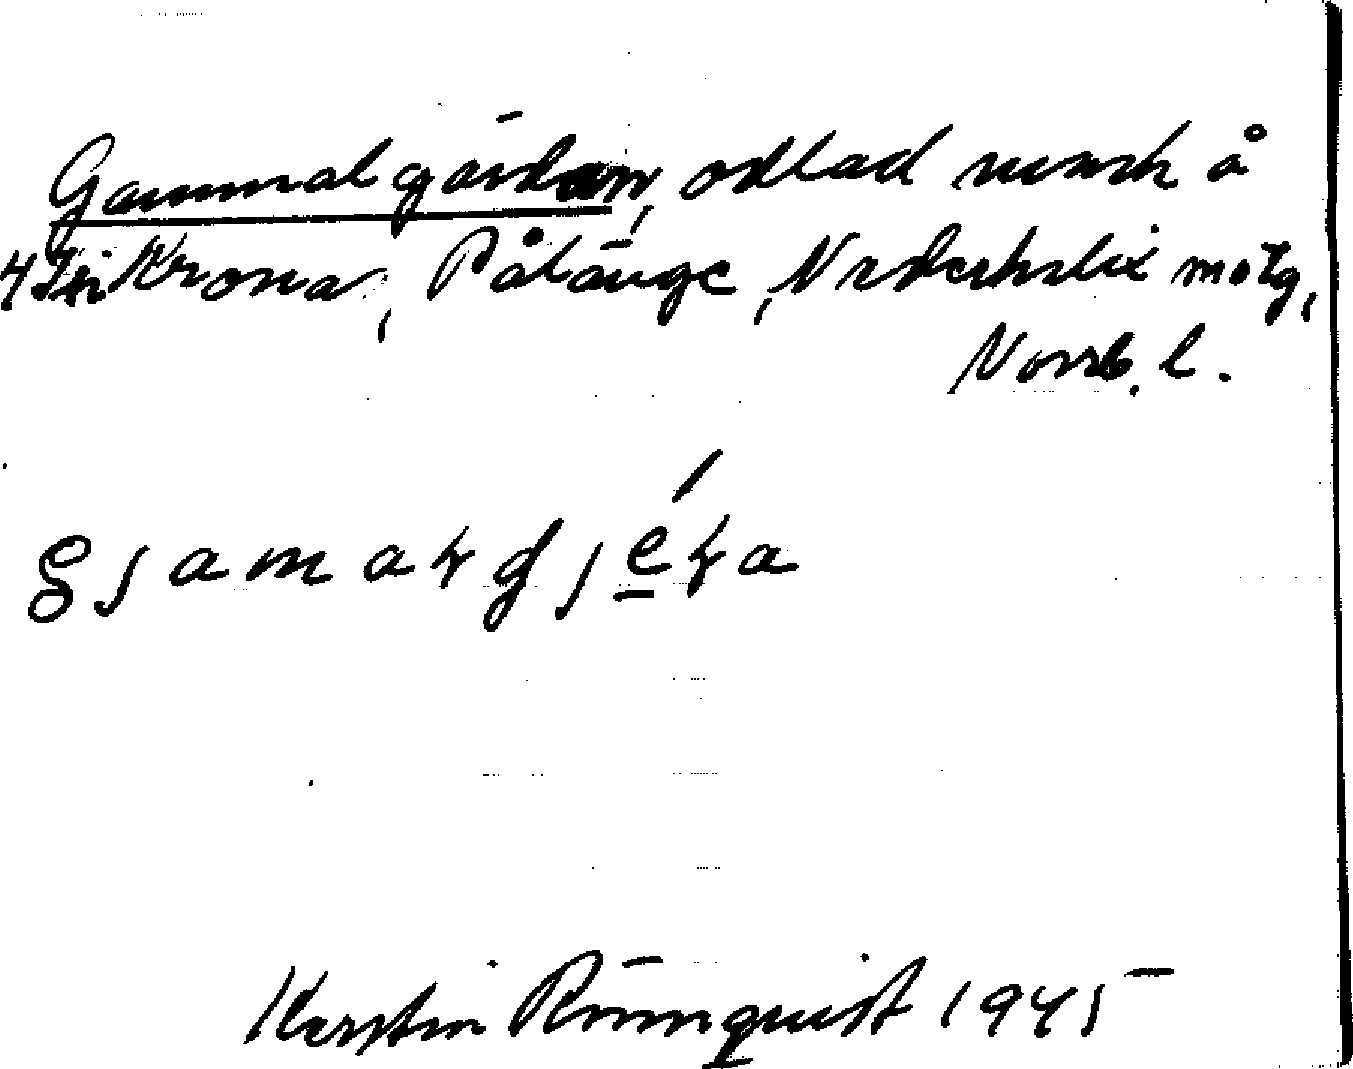 Gammalgärdan, odlad mark å
4 Krona, Pålänge, Nederkalix motg,
Norrb. l.
Kerstin Rönnquist 1945